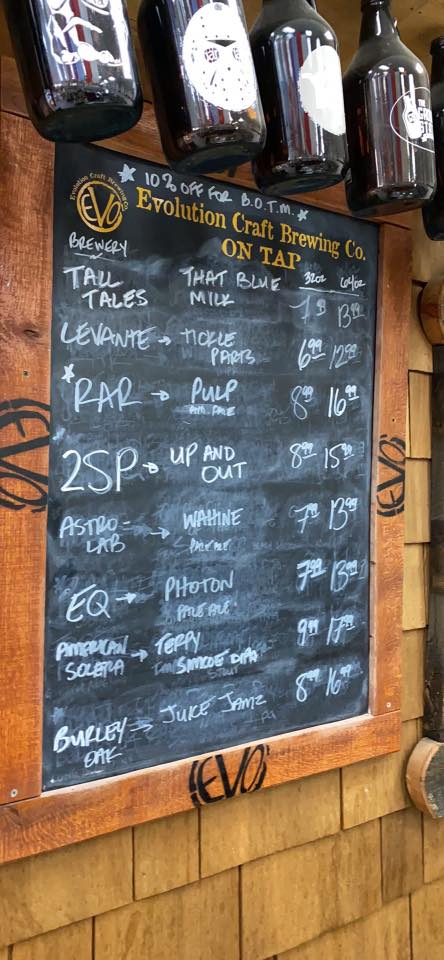 ★ 10% OFF FOR B.O.T.M. ★
Evolution Craft Brewing Co.
EVO
Evolution Craft Brewing Co.
ON TAP
BREWERY 32oz 64oz
TALL TALES THAT BLUE MILK 7 99 13 99
LEVANTE → TICKLE PARTS 6 99 12 99
★ RAR → PULP AM. PALE 8 99 16 99
2SP → UP AND OUT 8 99 15 99
ASTRO-LAB → WAHINE PALE ALE 7 99 13 99
EQ → PHOTON PALE ALE 7 99 13 99
AMERICAN SOLERA → TERPY SIMCOE DIPA 9 99 17 99
BURLEY OAK → JUICE JAMZ 8 99 16 99
EVO
EVO
EVO